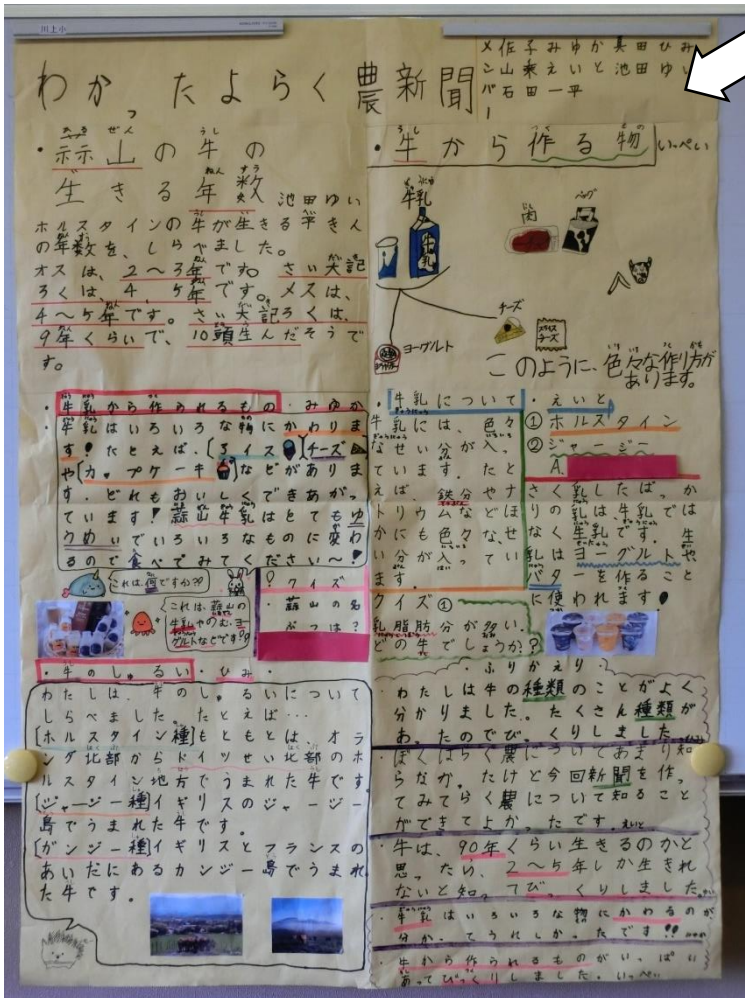 川上小
わかったよらく農新聞
メンバー
佐子みゆか 真田ひみ
山乗えいと 池田ゆい
石田一平
・蒜山の牛の
生きる年数 池田ゆい
ホルスタインの牛が生きる平きん
の年数を、しらべました。
オスは、2〜3年です。さい大記
ろくは、4、5年です。メスは、
4〜5年です。さい大記ろくは、
9年くらいで、10頭生んだそうで
す。
・牛から作る物 いっぺい
牛乳
牛乳
肉
パック
チーズ
スライスチーズ
ヨーグルト
このように、色々な作り方が
あります。
・牛乳から作られるもの・みゆか
・牛乳はいろいろな物にかわりま
す!たとえば、[アイス][チーズ]
や[カップケーキ]などがありま
す。どれもおいしくできあがっ
ています!蒜山牛乳はとてもゆ
うめいでいろいろなものに変わ
るので食べてみてください〜!
これは何ですか??
これは、蒜山の
牛乳やのむヨー
グルトなどです??
?クイズ
・蒜山の名
ぶつは?
・牛乳について・えいと
牛乳には、色々
なせい分が入っ
ています。たと
えば、鉄分やナ
トリウムなどほ
かにも色々な、せ
い分が入ってい
ます。
クイズ①
乳脂肪分が多い、
どの牛でしょうか?
①ホルスタイン
②ジャージー
A.
さく乳したばっか
りの乳は、牛乳では
なく生乳です。生
乳はヨーグルトや
バターを作ること
に使われます!
・牛のしゅるい・ひみ・
わたしは、牛のしゅるいについて
しらべました。たとえば…
[ホルスタイン種]もともとは、オラ
ンダ北部からドイツせい北部のホ
ルスタイン地方でうまれた牛です
[ジャージー種]イギリスのジャージー
島でうまれた牛です。
[ガンジー種]イギリスとフランスの
あいだにあるガンジー島でうまれ
た牛です。
・ふりかえり・
・わたしは牛の種類のことがよく
分かりました。たくさん種類が
あったのでびっくりしました。
・ぼくはらく農についてあまり知
らなかったけど今回新聞を作っ
てみてらく農について知ること
ができてよかったです。えいと
・牛は、90年くらい生きるのかと
思ったら、2〜5年しか生きれ
ないと知ってびっくりしました。
・牛乳はいろいろな物にかわるのが
分かってうれしかったです!!
・牛から作られるものがいっぱい
あってびっくりしました。いっぺい